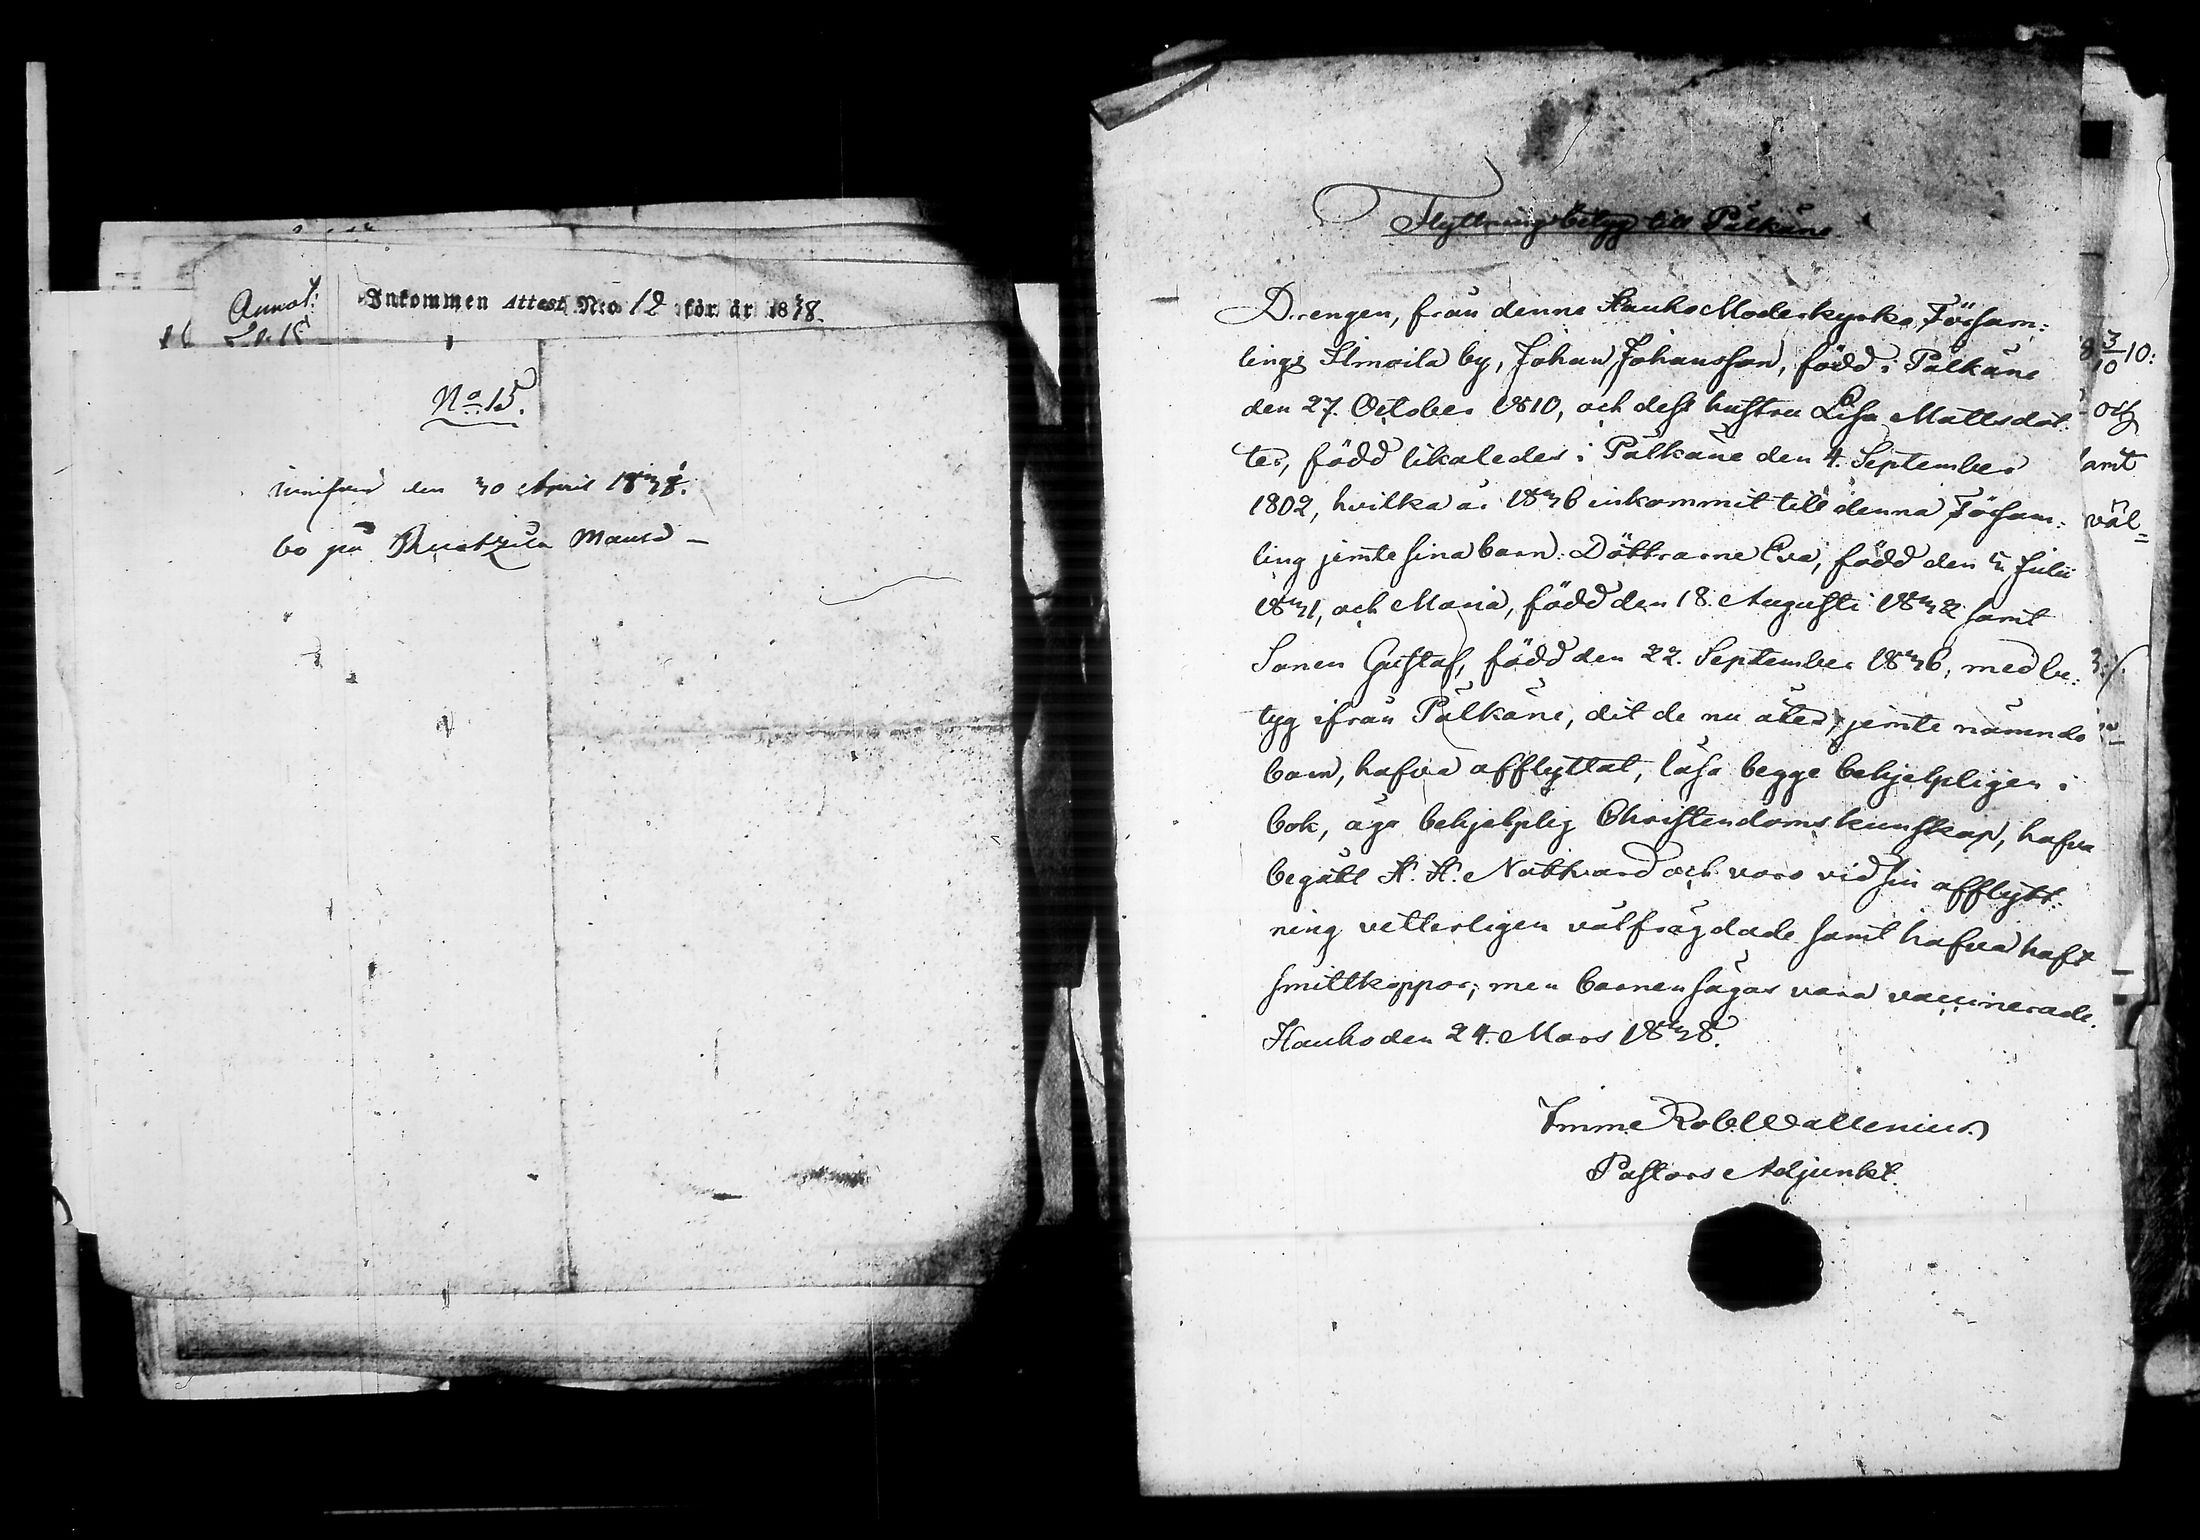 Annot:
Inkommen Attest Nro 12 för år 1838.
No 15.
den 30 April 1838.
bo på
Flyttningsbetyg till Pälkäne
Drengen, från denna Hauho Moderkyrko Försam:
lings Ilmoila by, Johan Johansson, född i Pälkäne
den 27. October 1810, och dess hustru Lisa Mattsdot:
ter, född likaledes i Pälkäne den 4. September
1802, hvilka år 1836 inkommit till denna Försam:
ling jemte sina barn: Döttrarne Eva, född den 5 Julii
1831, och Maria, född den 18. Augusti 1832 samt
Sonen Gustaf, född den 22. September 1836, med be:
tyg ifrån Pälkäne, dit de nu åter, jemte nämnde
barn, hafva afflyttat, läsa begge behjelpligen i
bok, äga behjelplig Christendomskunskap, hafva
begått H. H. Nattvard och voro vid sin afflytt:
ning vetterligen välfrägdade samt hafva haft
smittkoppor; men barnen sägas vara vaccinerade.
Hauho den 24. Mars 1838.
Imme Rob Wallenius
Pastors Adjunkt.
3/10 10:
och
samt
väl=